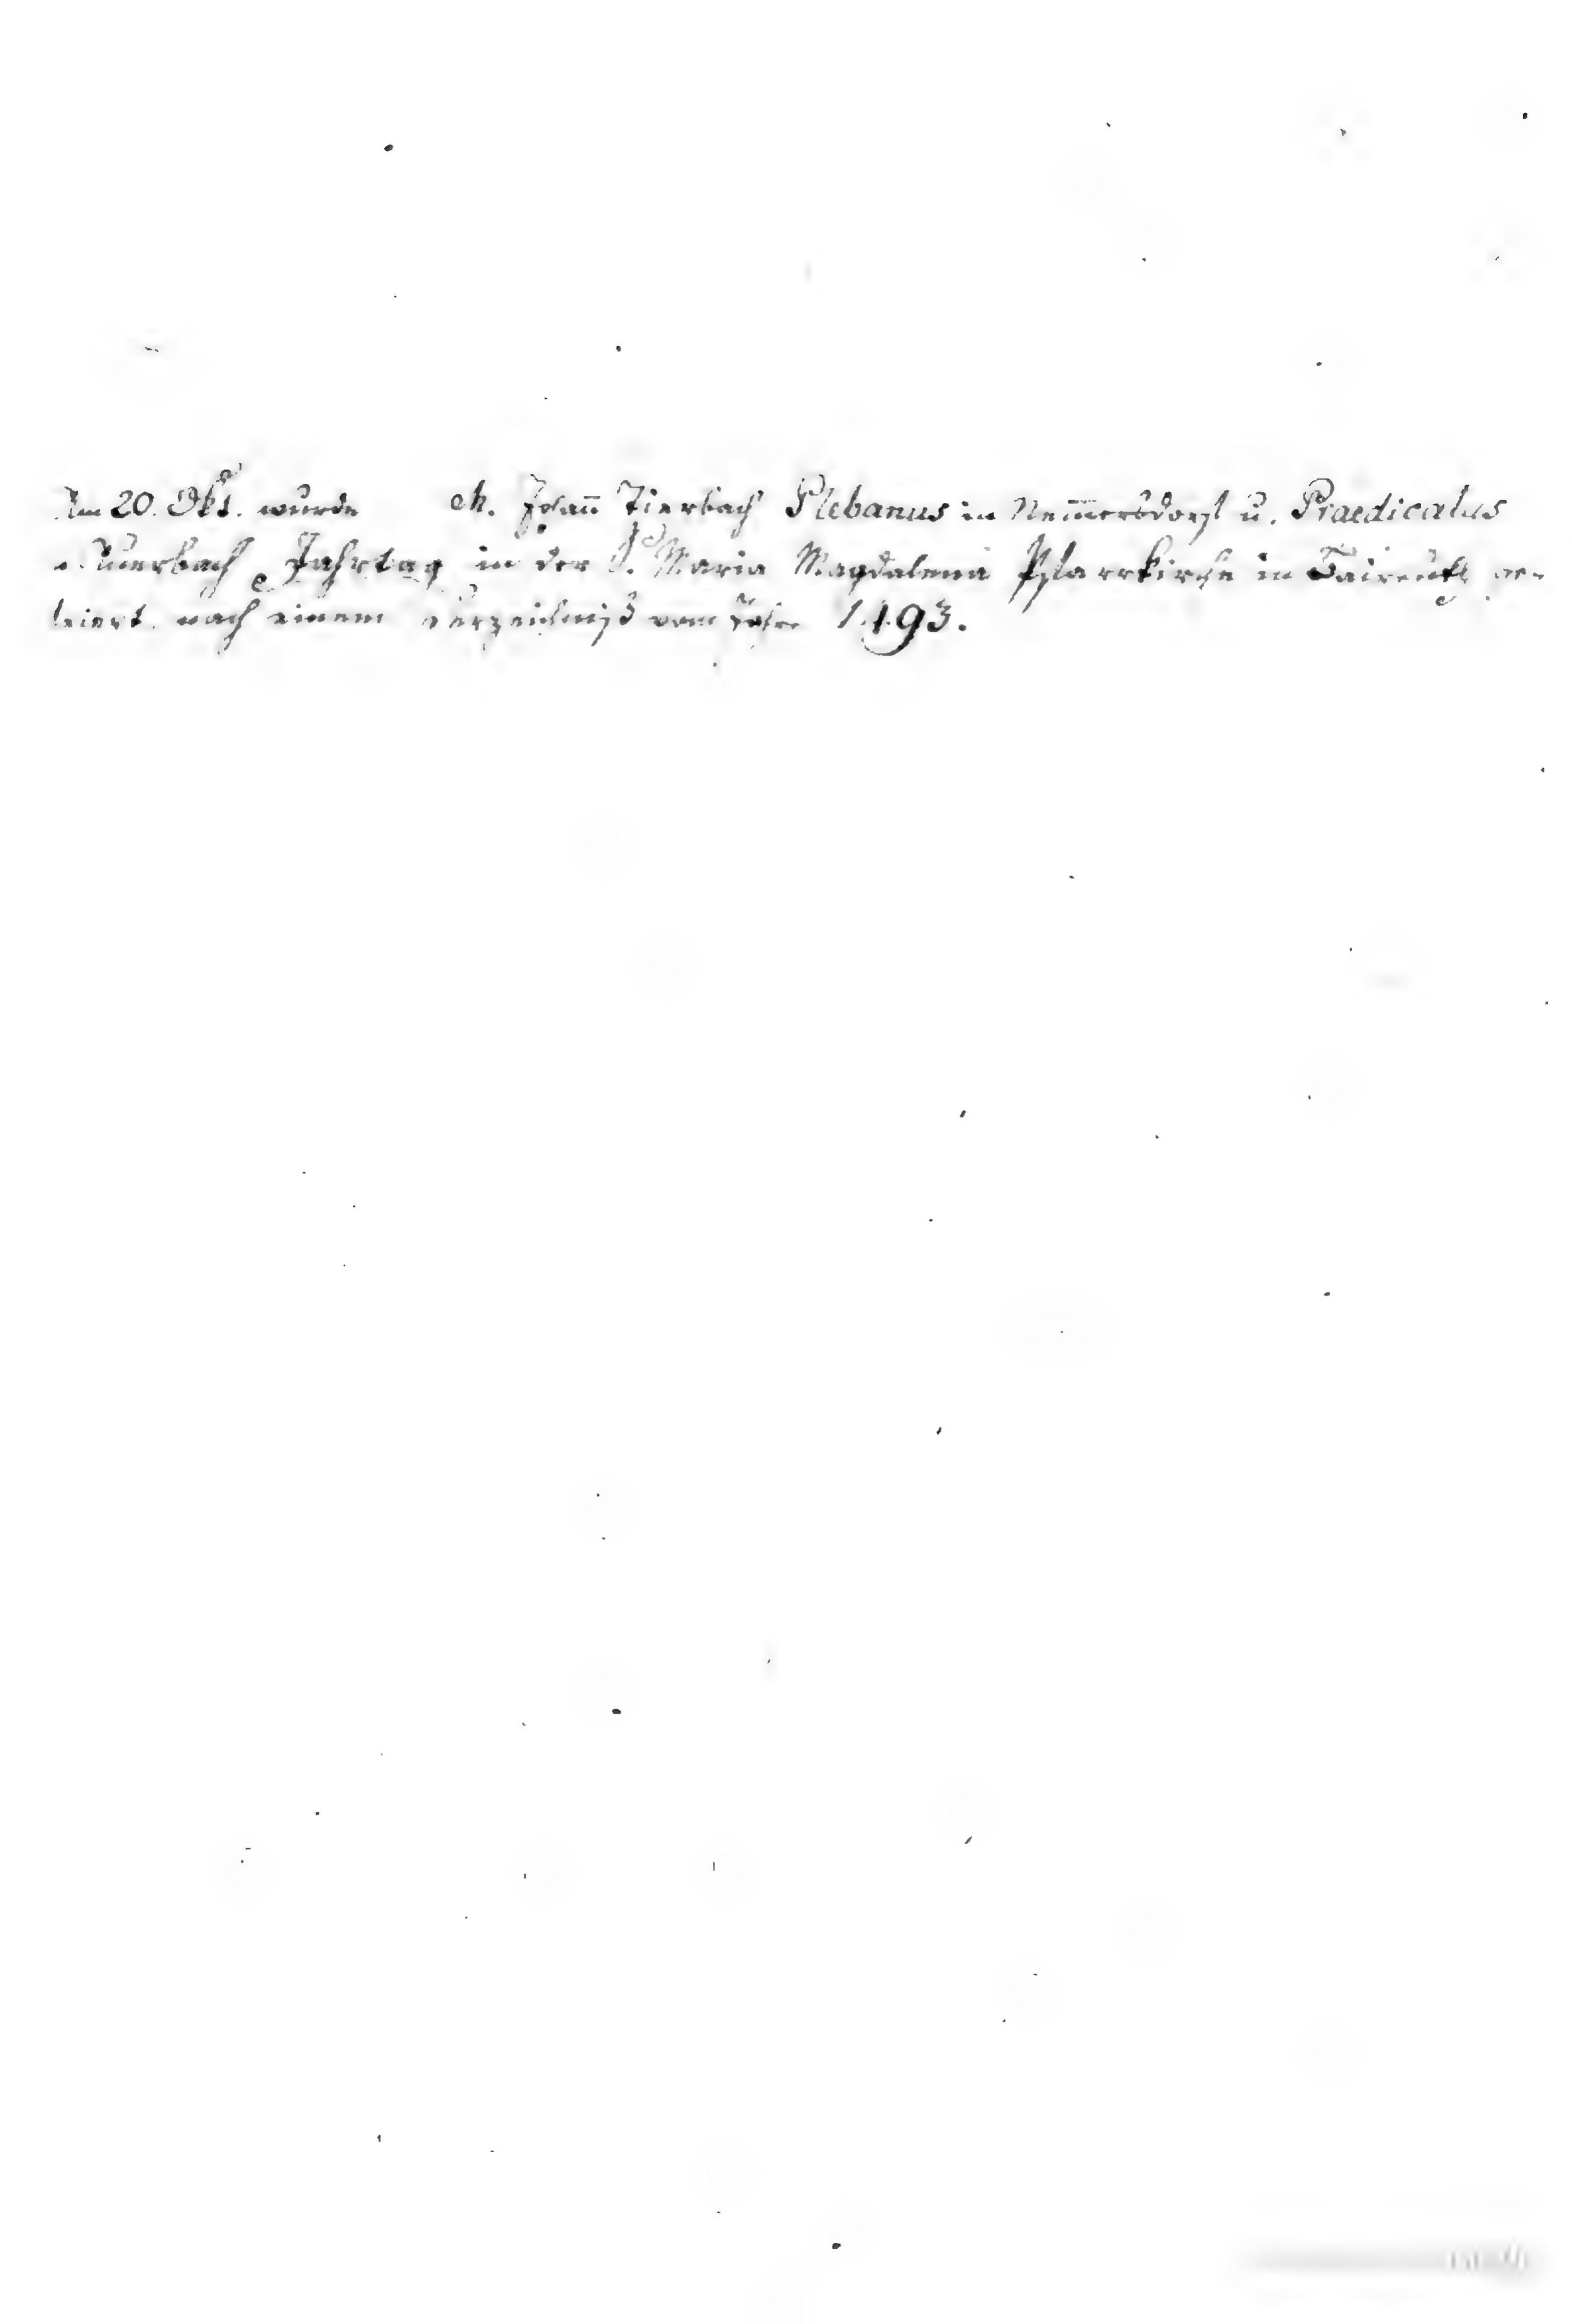 Am 20. Okt. wurde M. Johan̄ Tierbach Plebanus in Nem̄ersdorf u. Praedicatus
Auerbach Jahrtag in der S. Maria Magdalena Pfarrkirche in Baireuth ge-
feiert nach einem Verzeichniß vom Jahre 1493.